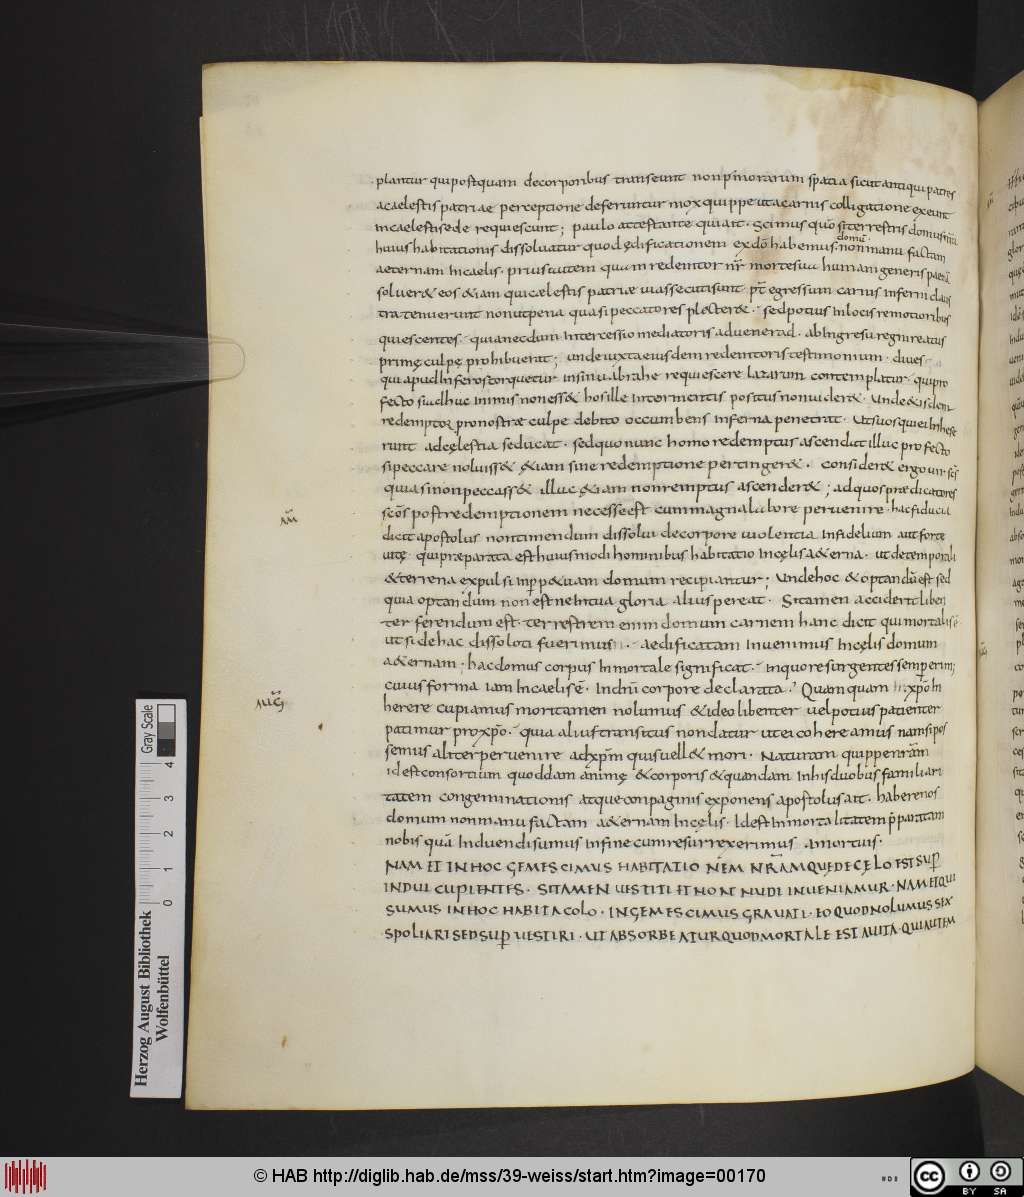 plantur qui postquam decorporibus transeunt non p̄morarum spatia sicut antiqui patres
acaelestis patriae perceptione deferuntur mox quippe ut acarnis colligatione exeunt
in caelesti sede requiescunt; paulo attestante qui ait. Scimus qu̅o si terrestris domus n̅r̅a
huius habitationis dissoluatur quod ędificationem ex d̅o habemus. domu̅ non manu factam
aeternam in caelis. prius autem quam redemtor n̅r̅ morte sua humani generis
solueret eos etiam qui cælestis patriæ uias secuti sunt. p̅t̅ egressum carnis inferni claus
tra tenuerunt non ut pena quasi peccatores plecteret. sed potius in locis remotioribus
quiescentes. quia necdum intercessio mediatoris aduenerad. ab ingresu regni reatus
primę culpę prohibuerat; unde iuxta eiusdem redemtoris testimonium. diues
qui apud inferos torquetur in sinu abrahe requiescere lazarum contemplatur. qui pro
fecto si adhuc in imis non esset hos ille in tormentis positus non uideret. Unde et isdem
redemptor pro nostræ culpe debito occumbens inferna penetrat. ut suos qui ei inhese
runt ad cęlestia reducat. sed quo nunc homo redemptus ascendit illuc profecto
si peccare noluisset etiam sine redemptione pertingeret. consideret ergo uir s̅c̅s
quia si non peccasset illuc etiam non remptus ascenderet; ad quos prædicatores
s̅c̅o̅s post redemptionem necesse est cum magna labore peruenire. hac fiducia
dicit apostolus non timendum dissolui de corpore uiolentia infidelium aut forte
uitę. qui præparata est huiusmodi hominibus habitatio in cęlis aeterna. ut de temporali
et terrena expulsi in p̅p̅etuam domum recipiantur; unde hoc et optandu̅ est sed
quia optandum non est ne in tua gloria alius pereat. Si tamen acciderit liben
ter ferendum est. terrestrem enim domum carnem hanc dicit qui mortalis e̅
ut si de hac dissoloti fuerimus. aedificatam inuenimus in cęlis domum
aeternam. hac domus corpus inmortale significat. in quo resurgentes semp̅ erim;
cuius forma iam in caelis e̅. in dn̅i corpore declarata. Quamquam in xp̅o in
herere cupiamus mori tamen nolumus et ideo libenter uel potius patienter
patimur pro xp̅o. quia alius transitus non datur ut ei cohereamus nam si pos
semus aliter peruenire ad xp̅m quis uellet mori. Naturam quippe n̅r̅a̅m
id est consortium quoddam animę et corporis et quandam in his duobus familiari
tatem congeminationis atque conpaginis exponens apostolus ait. habere nos
domum non manu factam aeternam in cęlis. Id est inmortalitatem p̅paratam
nobis qua̅ induendi sumus in fine cum resurrexerimus a mortuis.
NAM ET IN HOC GEMESCIMUS HABITATIONEM NR̅AM QUĘ DE CĘLO EST SUP̅
INDUI CUPIENTES. SI TAMEN UESTITI ET NON NUDI INUENIAMUR. NAM ET QUI
SUMUS IN HOC HABITACOLO. INGEMESCIMUS GRAUATI. EO QUOD NOLUMUS
SPOLIARI SED SUP̅ UESTIRI. UT ABSORBEATUR QUOD MORTALE EST A UITA. QUI AUTEM
AUG̅
Gray Scale
0 1 2 3 4
Herzog August Bibliothek
Wolfenbüttel
© HAB http://diglib.hab.de/mss/39-weiss/start.htm?image=00170
CC BY SA